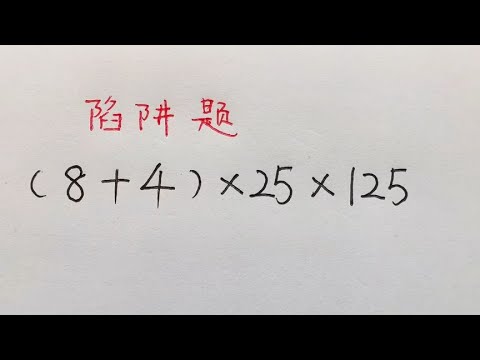 陷阱题
(8+4)×25×125